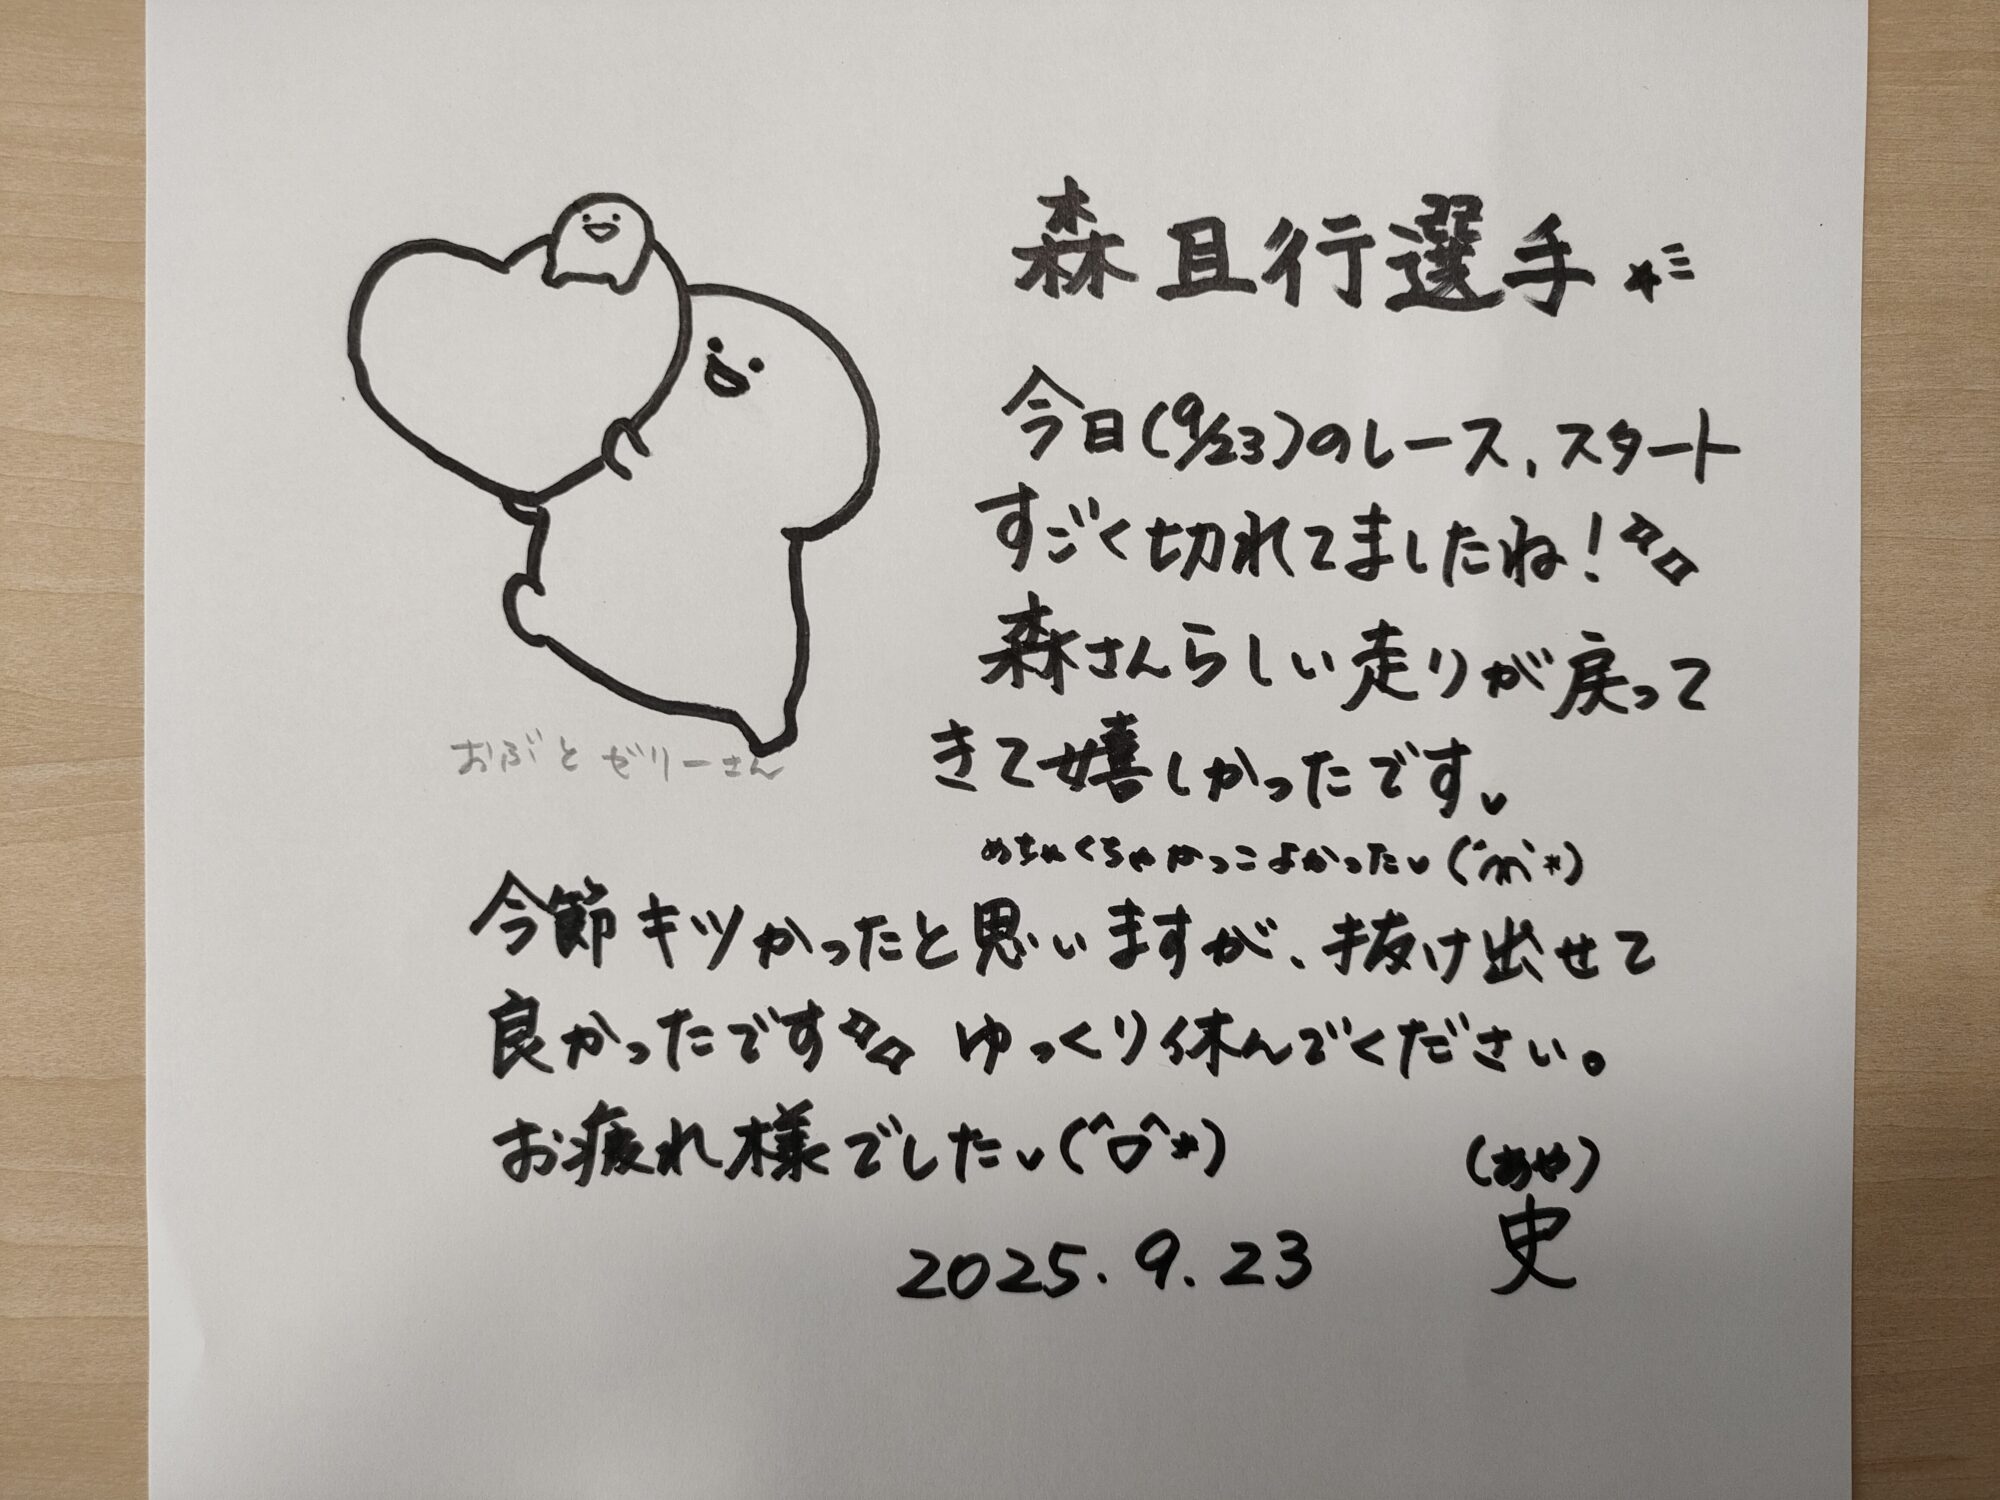 森且行選手☆ミ
今日(9/23)のレース、スタート
すごく切れてましたね！
森さんらしい走りが戻って
きて嬉しかったです。
めちゃくちゃかっこよかった♥(*´`*)
今節キツかったと思いますが、抜け出せて
良かったです ゆっくり休んでください。
お疲れ様でした♥(^O^*)
(あや)
史
2025.9.23
おぶとゼリーさん